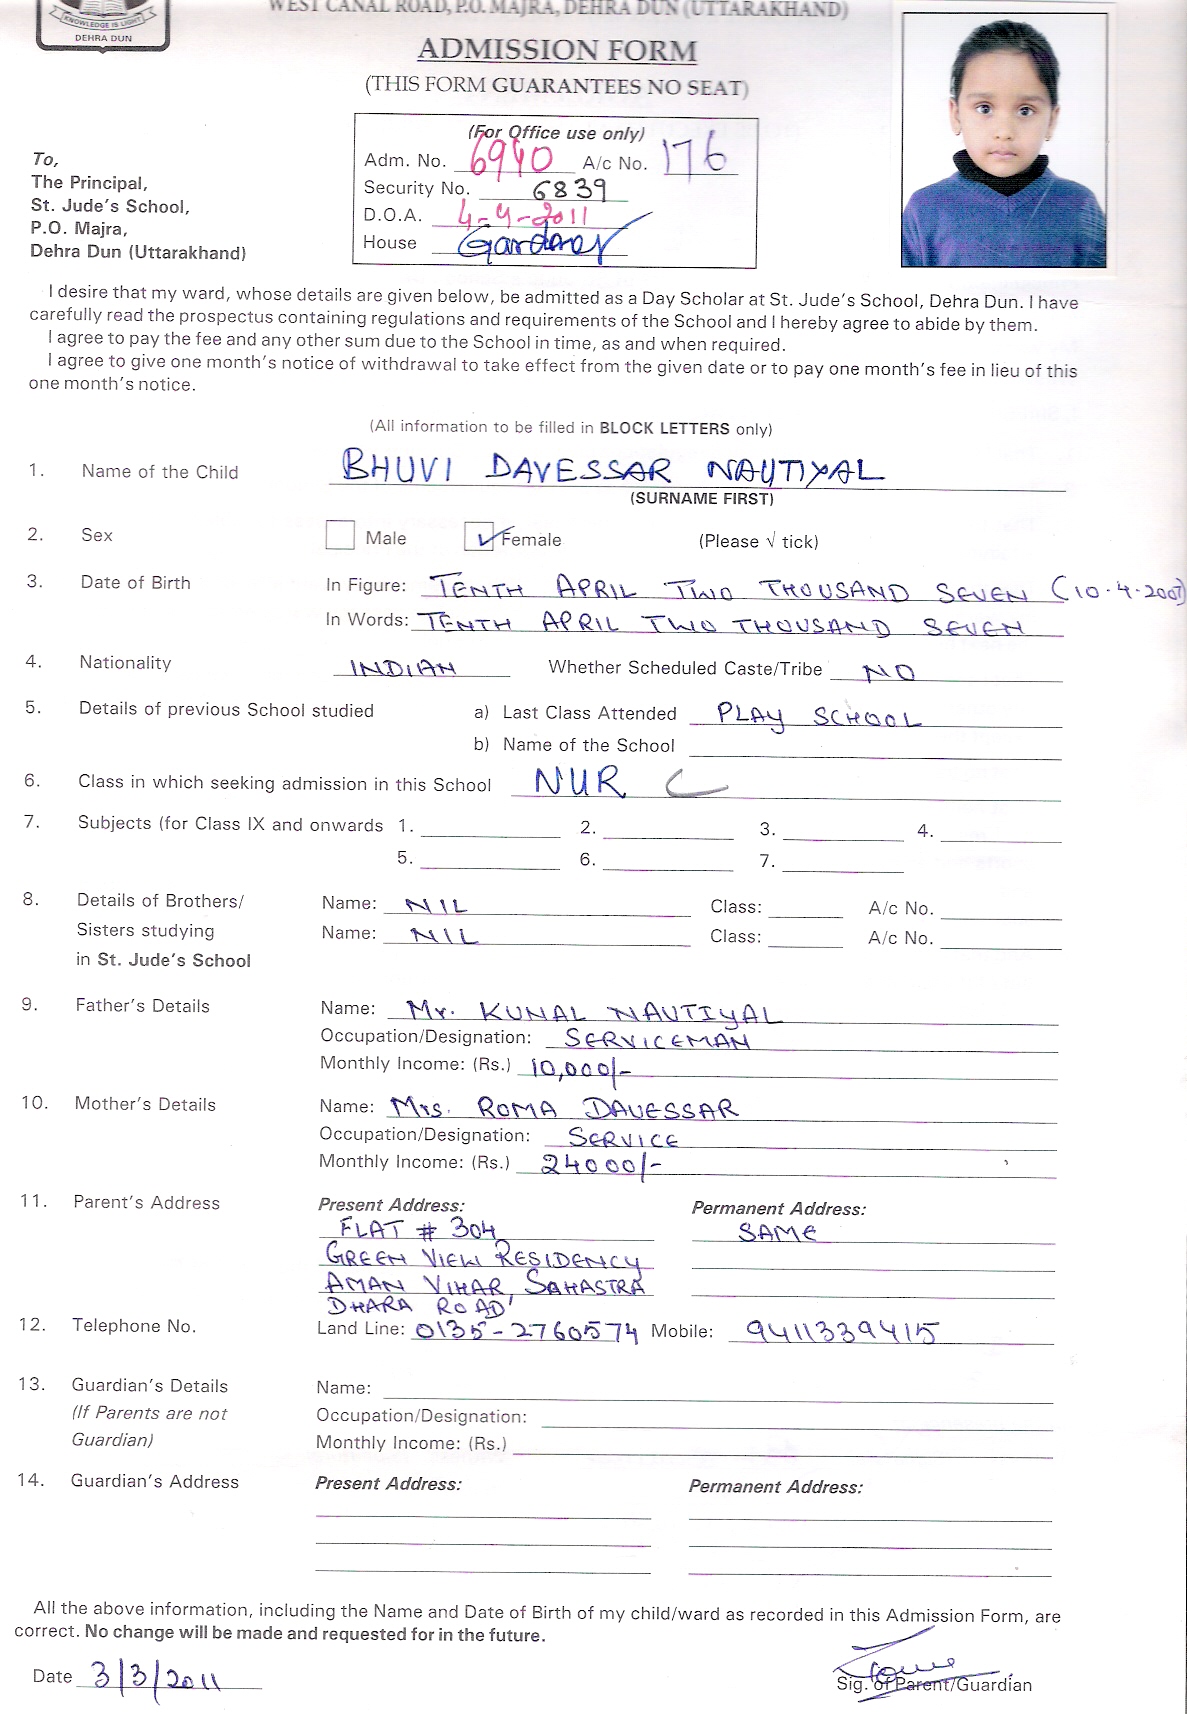 WEST CANAL ROAD, P.O. MAJRA, DEHRA DUN (UTTARAKHAND)
KNOWLEDGE IS LIGHT
DEHRA DUN
ADMISSION FORM
(THIS FORM GUARANTEES NO SEAT)
(For Office use only)
Adm. No. 6940 A/c No. 176
Security No. 6839
D.O.A. 4-4-2011
House
To,
The Principal,
St. Jude's School,
P.O. Majra,
Dehra Dun (Uttarakhand)
I desire that my ward, whose details are given below, be admitted as a Day Scholar at St. Jude's School, Dehra Dun. I have
carefully read the prospectus containing regulations and requirements of the School and I hereby agree to abide by them.
I agree to pay the fee and any other sum due to the School in time, as and when required.
I agree to give one month's notice of withdrawal to take effect from the given date or to pay one month's fee in lieu of this
one month's notice.
(All information to be filled in BLOCK LETTERS only)
1. Name of the Child BHUVI DAVESSAR NAUTIYAL
(SURNAME FIRST)
2. Sex Male Female (Please √ tick)
3. Date of Birth In Figure: TENTH APRIL TWO THOUSAND SEVEN (10.4.2007)
In Words: TENTH APRIL TWO THOUSAND SEVEN
4. Nationality INDIAN Whether Scheduled Caste/Tribe NO
5. Details of previous School studied a) Last Class Attended PLAY SCHOOL
b) Name of the School
6. Class in which seeking admission in this School NUR C
7. Subjects (for Class IX and onwards 1. 2. 3. 4.
5. 6. 7.
8. Details of Brothers/ Name: NIL Class: A/c No.
Sisters studying Name: NIL Class: A/c No.
in St. Jude's School
9. Father's Details Name: Mr. KUNAL NAUTIYAL
Occupation/Designation: SERVICEMAN
Monthly Income: (Rs.) 10,000/-
10. Mother's Details Name: Mrs. ROMA DAVESSAR
Occupation/Designation: SERVICE
Monthly Income: (Rs.) 24000/-
11. Parent's Address Present Address: Permanent Address:
FLAT # 304 SAME
GREEN VIEW RESIDENCY
AMAN VIHAR, SAHASTRA
DHARA ROAD
12. Telephone No. Land Line: 0135-2760574 Mobile: 9411339415
13. Guardian's Details Name:
(If Parents are not Occupation/Designation:
Guardian) Monthly Income: (Rs.)
14. Guardian's Address Present Address: Permanent Address:
All the above information, including the Name and Date of Birth of my child/ward as recorded in this Admission Form, are
correct. No change will be made and requested for in the future.
Date 3/3/2011
Sig. of Parent/Guardian